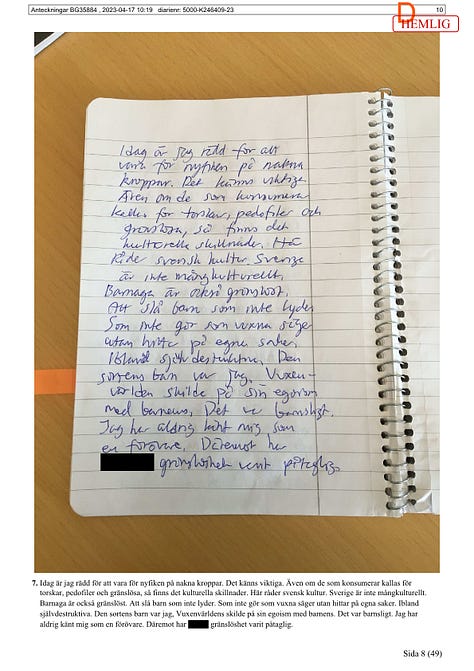 Anteckningar BG35884 , 2023-04-17 10:19   diarienr: 5000-K246409-23
10
D
HEMLIG
Idag är jag rädd för att
vara för nyfiken på nakna
kroppar. Det känns viktiga
Även om de som konsumera
kallas för torskar, pedofiler och
gränslösa, så finns det
kulturella skillnader. Hä
Råder svensk kultur. Sverige
är inte mångkulturellt.
Barnaga är också gränslöst.
Att slå barn som inte lyder
Som inte gör som vuxna säger
utan hitta på egna saker.
Ibland självdestruktiva. Den
sortens barn var jag. Vuxen-
världen skilde på sin egoism
med barnens. Det va barnsligt.
Jag har aldrig känt mig som
en förövare. Däremot ha
gränslöshet varit påtaglig.
7. Idag är jag rädd för att vara för nyfiken på nakna kroppar. Det känns viktiga. Även om de som konsumerar kallas för
torskar, pedofiler och gränslösa, så finns det kulturella skillnader. Här råder svensk kultur. Sverige är inte mångkulturellt.
Barnaga är också gränslöst. Att slå barn som inte lyder. Som inte gör som vuxna säger utan hittar på egna saker. Ibland
självdestruktiva. Den sortens barn var jag, Vuxenvärldens skilde på sin egoism med barnens. Det var barnsligt. Jag har
aldrig känt mig som en förövare. Däremot har gränslöshet varit påtaglig.
Sida 8 (49)